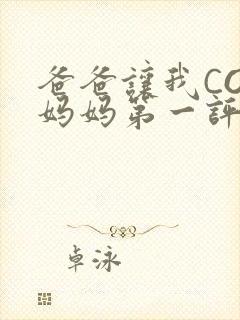 爸爸讓我CO
妈妈第一評
卓泳